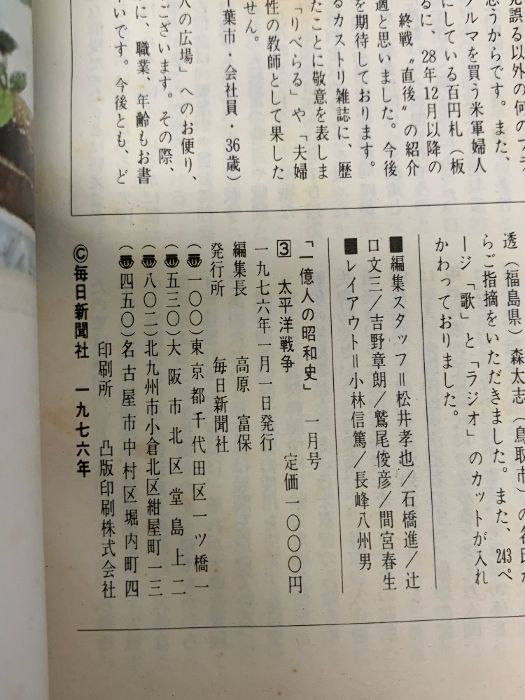 見誤る以外の何のプラ
思うからです。また、
ルマを買う米軍婦人
にしている百円札（板
るに、28年12月以降の
終戦〝直後〟の紹介
適と思いました。今後
を期待しております。
るカストリ雑誌に、歴
たことに敬意を表しま
「りべらる」や「夫婦
性の教師として果した
せん。
葉市・会社員・36歳）
人の広場」へのお便り、
ございます。その際、
に、職業、年齢もお書
いです。今後とも、ど
透（福島県）森太志（鳥取市）の各氏か
らご指摘をいただきました。また、243ペ
ージ「歌」と「ラジオ」のカットが入れ
かわっておりました。
■編集スタッフ＝松井孝也／石橋進／辻
口文三／吉野章朗／鷲尾俊彦／間宮春生
■レイアウト＝小林信篤／長峰八州男
「一億人の昭和史」 一月号
3 太平洋戦争 定価一〇〇〇円
一九七六年一月一日発行
編集長 高原富保
発行所 毎日新聞社
（〠一〇〇）東京都千代田区一ツ橋一
（〠五三〇）大阪市北区堂島上二
（〠八〇二）北九州市小倉北区紺屋町一三
（〠四五〇）名古屋市中村区堀内町四
印刷所 凸版印刷株式会社
©毎日新聞社 一九七六年